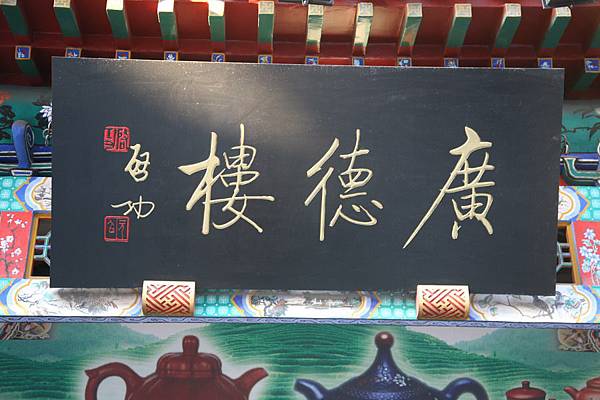 廣德樓
啓功